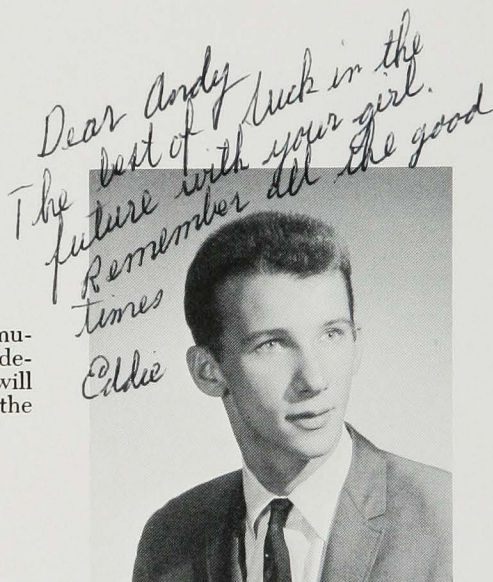 Dear Andy
The best of luck in the
future with your girl.
Remember all the good
times
Eddie
mu-
de-
will
the